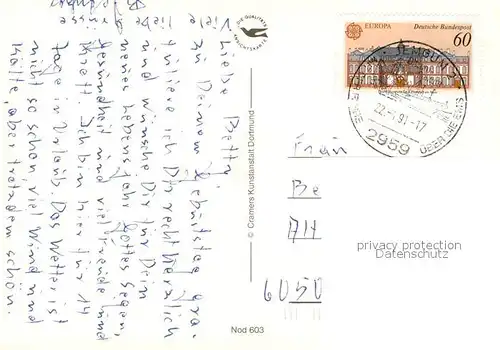 Liebe Betty!
Zu Deinem Geburtstag gra-
tuliere ich Dir recht herzlich
und wünsche Dir für Dein
neues Lebensjahr Gottes Segen,
Gesundheit und viel Freude und
Kraft. Ich bin hier für 14
Tage in Urlaub. Das Wetter ist
nicht so schön viel Wind und
Kälte, aber trotzdem schön.
Viele liebe Grüsse
DIE QUALITÄTS
ANSICHTSKARTE
© Cramers Kunstanstalt Dortmund
Nod 603
EUROPA Deutsche Bundespost
60
22.-1.91-17
2959
ÜBER DIE EMS
Frau
Be
Alt
6050
privacy protection
Datenschutz